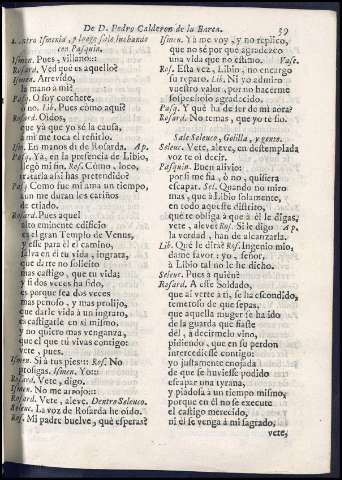 De D. Pedro Calderon de la Barca. 59
Entra Ismenia, y luego sale luchando
con Pasquin.
Ismen. Pues, villano:::
Rosard. Ved qué es aquello?
Ismen. Atrevido,
la mano á mi?
Pasq. O soy corchete,
ù no. Lib. Pues cómo aquí?
Rosard. Oídos,
que yá que yo sé la causa,
á mí me toca el reñirlo.
Ism. En manos dí de Rosarda. Ap.
Pasq. Ya, en la presencia de Libio,
llegó mi fin. Ros. Cómo, loco,
tratarla assi has pretendido?
Pasq. Como fue mi ama un tiempo,
aun me duran los cariños
de criado.
Rosard. Pues aquel
alto eminente edificio
es el gran Templo de Venus,
y esse para él el camino,
salva en él tu vida, ingrata,
que darte no solicito
mas castigo, que tu vida;
y si dos veces ha sido,
es porque sea dos veces
mas penoso, y mas prolijo,
que darle vida à un ingrato,
es castigarle en si mismo.
Y no quiero mas venganza,
que el que tu vivas contigo:
vete, pues.
Ismen. Si á tus pies::: Ros. No
prosigas. Ismen. Yo:::
Rosard. Vete, digo.
Ismen. No me arrojo:::
Rosard. Vete, aleve. Dentro Seleuco.
Seleuc. La voz de Rosarda he oído.
Ros. Mi padre buelve, qué esperas?
Ismen. Yá me voy, y no replico,
que no sé por qué agradezco
una vida que no estimo. Vase.
Ros. Esta vez, Libio, no encargo
su reparo. Lib. Ni yo admiro
vuestro valor, por no hacerme
sospechoso agradecido.
Pasq. Y qué ha de ser de mi aora?
Rosard. No temas, que yo te fio.
Sale Seleuco, Golilla, y gente.
Seleuc. Vete, aleve, en destemplada
voz te oí decir.
Pasquin. Buen alivio:
por si me há, ò no, quisiera
escapar. Sel. Quando no miro
mas, que à Libio solamente,
en todo aqueste distrito,
qué te obliga à que à él le digas,
vete, aleve? Ros. Si le digo Ap.
la verdad, han de alcanzarla.
Lib. Qué le dirá? Ros. Ingenio mio,
dame favor: yo, señor,
á Libio tal no le he dicho.
Seleuc. Pues à quién?
Rosard. A este Soldado,
que al verte à ti, se ha escondido,
temeroso de que sepas,
que aquella muger se ha ido
de la guarda que fiaste
dél, à decirmelo vino,
pidiendo, que en su perdon
intercediesse contigo:
yo justamente enojada
de que se huviesse podido
escapar una tyrana,
y piadosa à un tiempo mismo,
porque en él no se execute
el castigo merecido,
ni él se venga à mi sagrado,
vete,